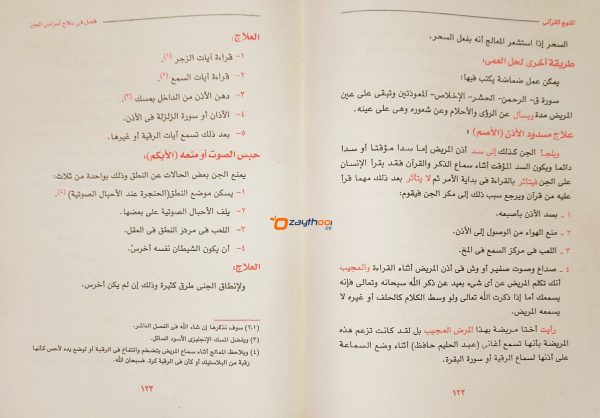 المنهج القرآنى
السحر إذا استشعر المعالج أنه بفعل السحر.
طريقة أخرى لحل العمى:
يمكن عمل ضماضة يكتب فيها:
سورة ق- الرحمن- الحشر- الإخلاص- المعوذتين وتبقى على عين
المريض مدة ويسأل عن الرؤى والأحلام وعن شعوره وهى على عينه.
علاج مسدود الأذن (الأصم) :
ويلجأ الجن كذلك إلى سد أذن المريض إما سدا مؤقتا أو سدا
دائما ويكون السد المؤقت أثناء سماع الذكر والقرآن فقد يقرأ الإنسان
على الجن فيتأثر بالقراءة فى بداية الأمر ثم لا يتأثر بعد ذلك مهما قرأ
عليه من قرآن ويرجع سبب ذلك إلى مكر الجن فيقوم:
١ ـ بسد الأذن بأصبعه.
٢ ـ منع الهواء من الوصول إلى الأذن.
٣ ـ اللعب فى مركز السمع فى المخ.
٤ ـ صداع وصوت صفير أو وش فى أذن المريض أثناء القراءة والعجيب
أنك تكلم المريض عن أى شىء بعيد عن ذكر الله سبحانه وتعالى فإنه
يسمعك أما إذا ذكرت الله تعالى ولو وسط الكلام كالحلف أو غيره لا
يسمعه المريض.
رأيت أختا مريضة بهذا المرض العجيب بل لقد كانت تزعم هذه
المريضة بأنها تسمع أغانى (عبد الحليم حافظ) أثناء وضع السماعة
على أذنها لسماع الرقية أو سورة البقرة.
١٢٢
فصل فى علاج أمراض الجن
العلاج:
١- قراءة آيات الزجر (١).
٢- قراءة آيات السمع (٢).
٣- دهن الأذن من الداخل بمسك (٣).
٤- الأذان أو سورة الزلزلة فى الأذن.
٥- بعد ذلك تسمع آيات الرقية أو غيرها.
حبس الصوت أو منعه (الأبكم):
يمنع الجن بعض الحالات عن النطق وذلك بواحدة من ثلاث:
١- يسكن موضع النطق (الحنجرة عند الأحبال الصوتية) (٤).
٢- يلف الأحبال الصوتية على بعضها.
٣- اللعب فى مركز النطق فى العقل.
٤- أن يكون الشيطان نفسه أخرس.
العلاج:
ولإنطاق الجنى طرق كثيرة وذلك إن لم يكن أخرس.
(١،٢) سوف نذكرها إن شاء الله فى الفصل العاشر.
(٣) ويفضل المسك الإنجليزى الأسود السائل.
(٤) ويلاحظ المعالج أثناء سماع المريض بتضخم وانتفاخ فى الرقبة أو لوضع يده لأحس كأنها
رقبة من البلاستيك أو الكرة. فسبحان الله.
١٢٣
Ozaythoon